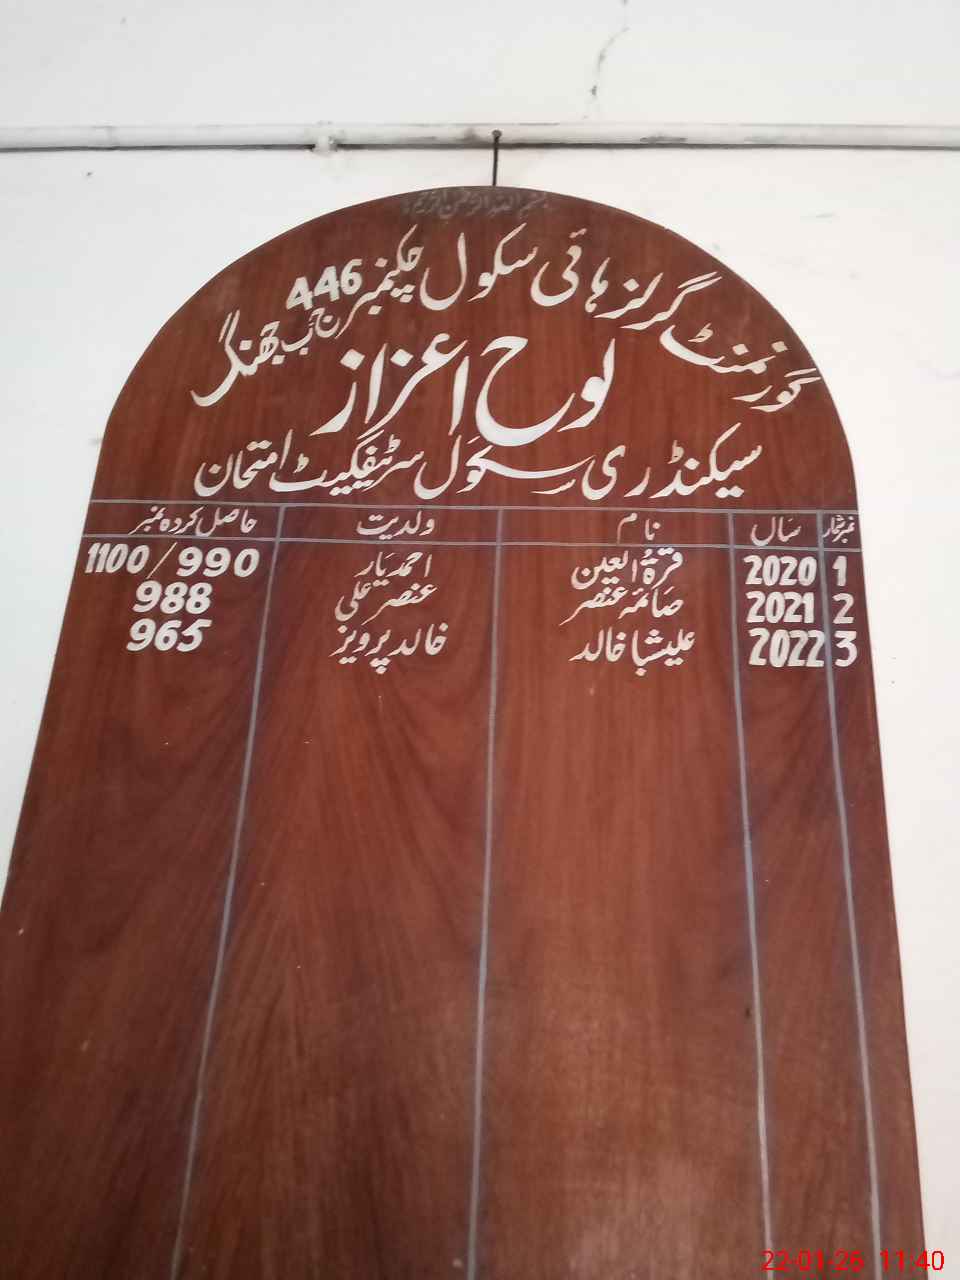 بسم اللہ الرحمن الرحیم
گورنمنٹ گرلز ہائی سکول چکنمبر 446 ج ب جھنگ
لوح اعزاز
سیکنڈری سکول سرٹیفکیٹ امتحان
نمبرشمار سال نام ولدیت حاصل کردہ نمبر
1 2020 قرۃ العین احمد یار 990/1100
2 2021 صائمہ عنصر عنصر علی 988
3 2022 علیشبا خالد خالد پرویز 965
22-01-26 11:40